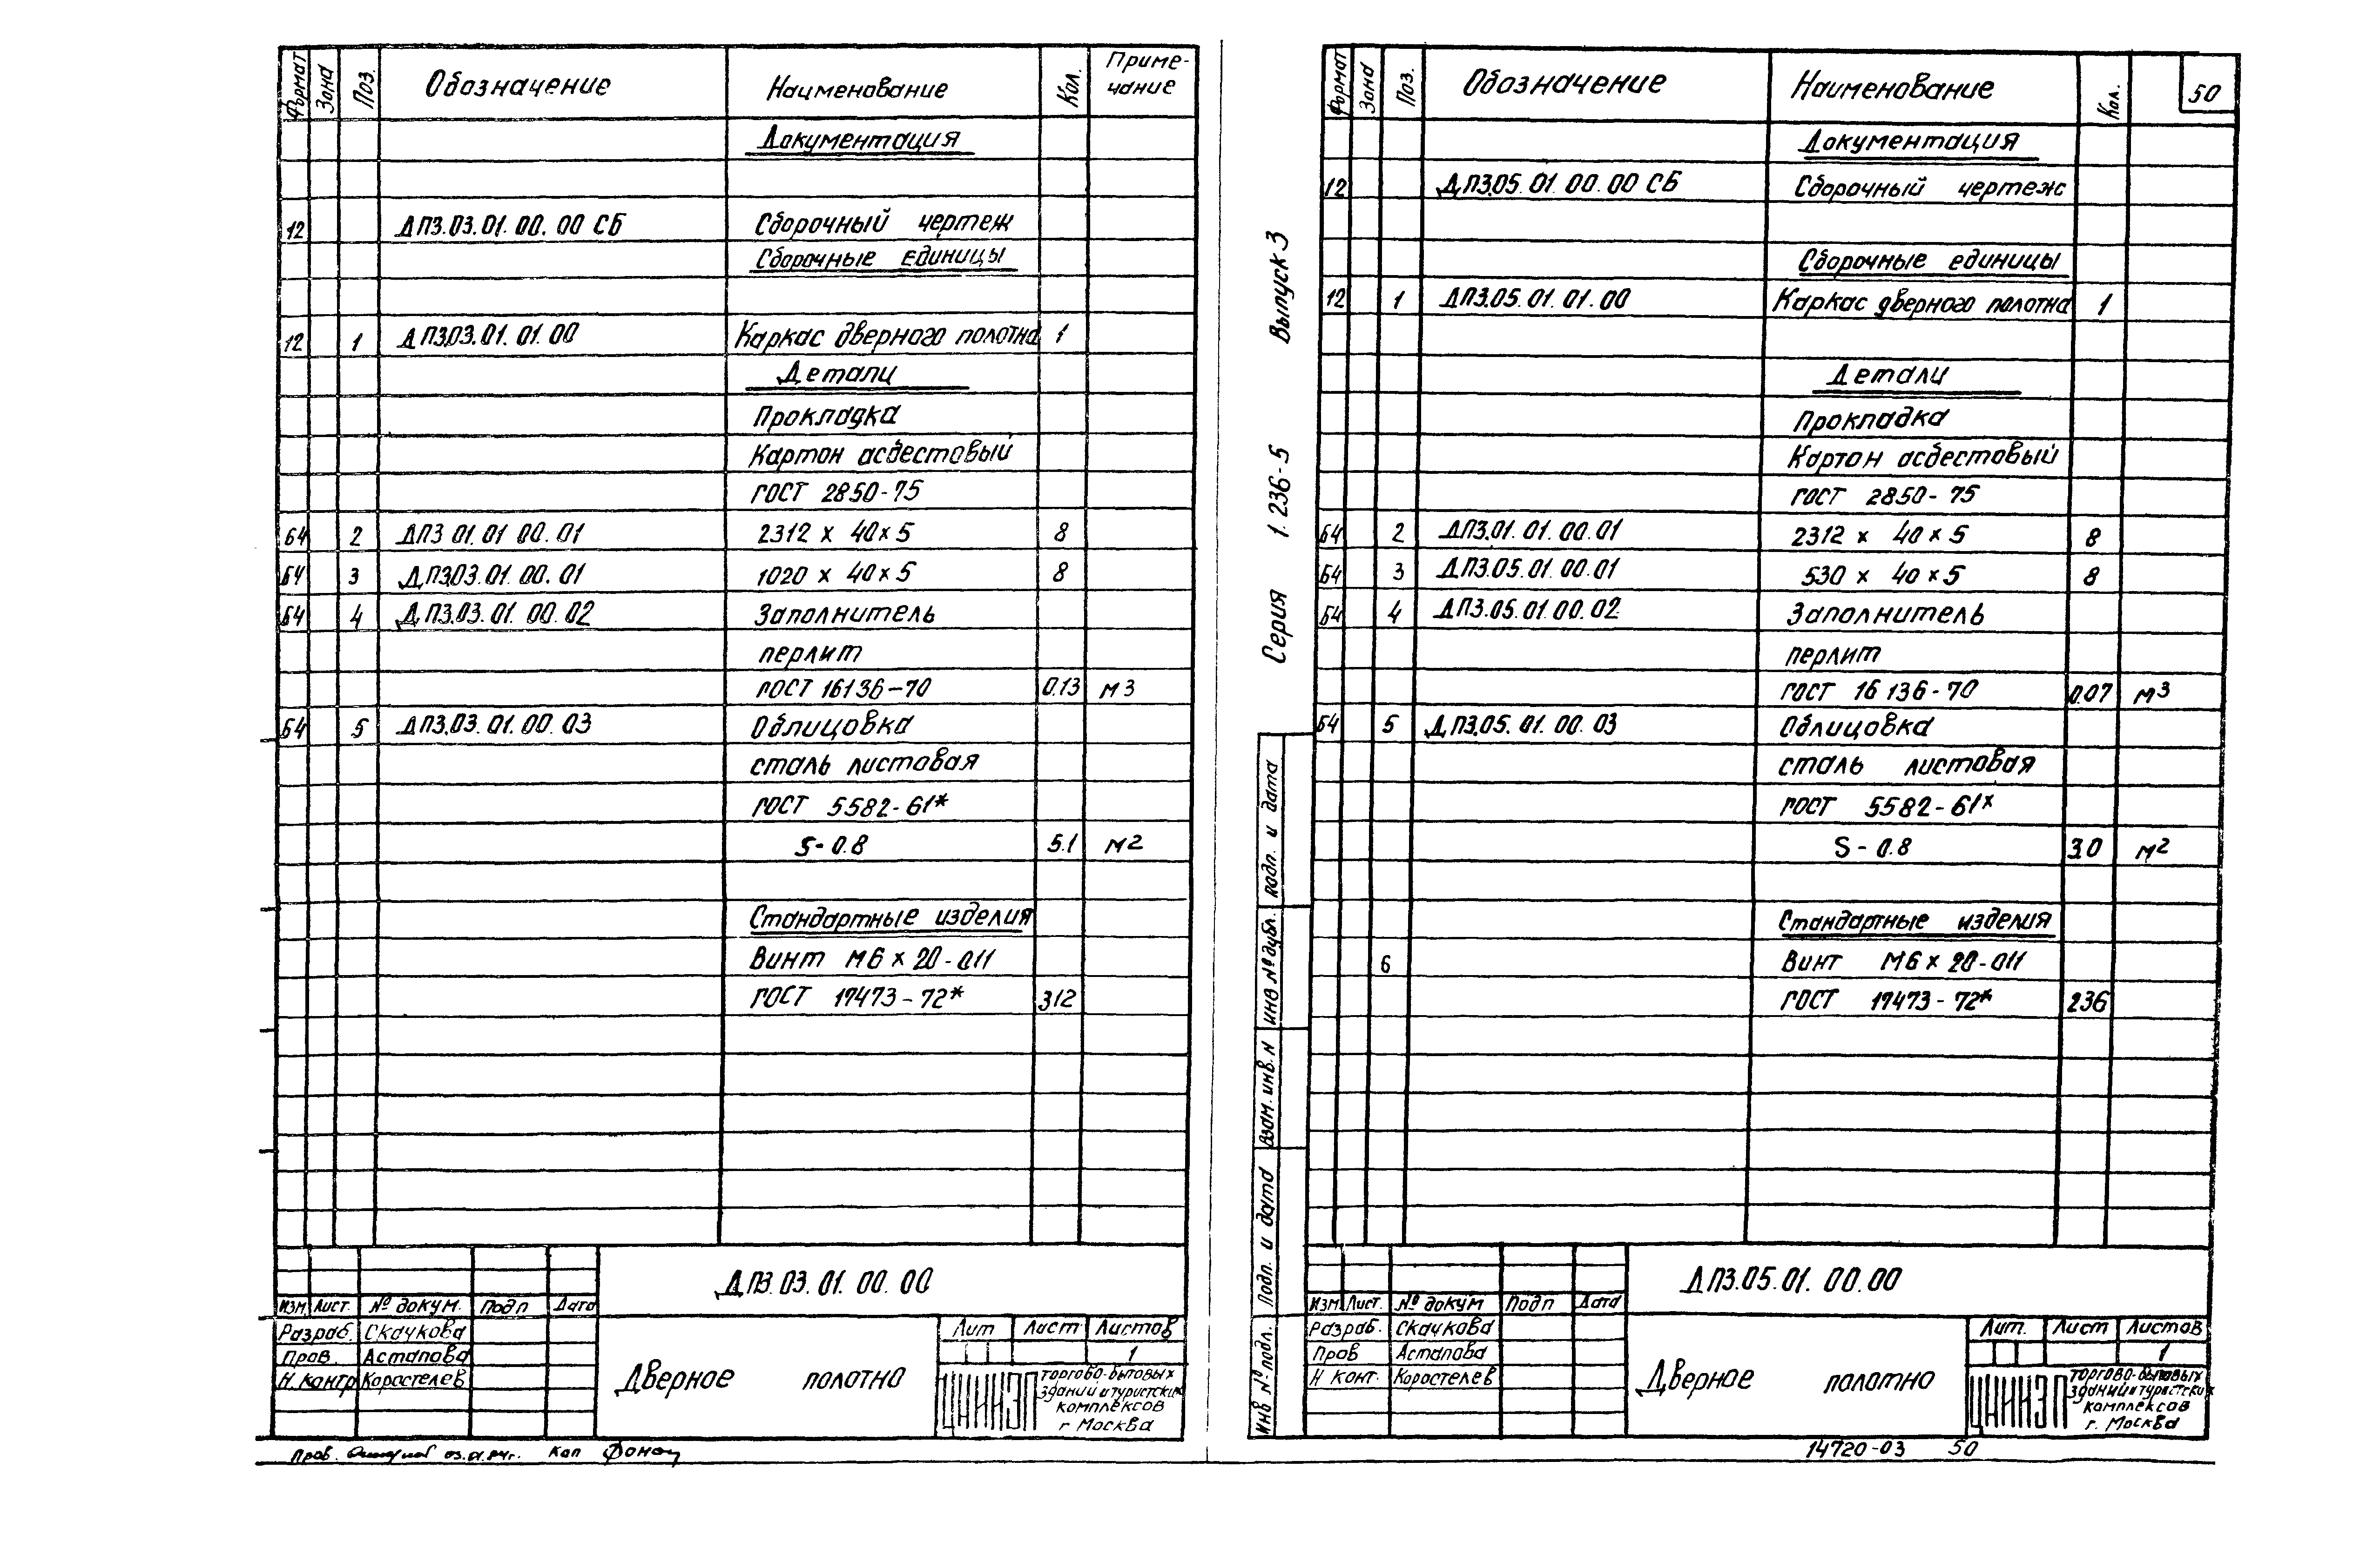 Формат Зона Поз. Обозначение Наименование Кол. Приме-
чание
Документация
12 ДП3.03.01.00.00 СБ Сборочный чертеж
Сборочные единицы
12 1 ДП3.03.01.01.00 Каркас дверного полотна 1
Детали
Прокладка
Картон асбестовый
ГОСТ 2850-75
Б4 2 ДП3 01.01 00.01 2312 х 40х5 8
Б4 3 ДП3.03.01.00.01 1020 х 40х5 8
Б4 4 ДП3.03.01.00.02 Заполнитель
перлит
ГОСТ 16136-70 0.13 м3
Б4 5 ДП3.03.01.00.03 Облицовка
сталь листовая
ГОСТ 5582-61*
S-0.8 5.1 м2
Стандартные изделия
Винт М6х20-011
ГОСТ 17473-72* 312
ДП3.03.01.00.00
Изм Лист. № докум. Подп Дата
Разраб. Скачкова
Пров. Астапова
Н.контр Коростелев
Дверное полотно
Лит Лист Листов
1
ЦНИИЭП
торгово-бытовых
зданий и туристских
комплексов
г Москва
Пров. 03.01.84г. Кап
Серия 1.236-5 Выпуск 3
Формат Зона Поз. Обозначение Наименование Кол. 50
Документация
12 ДП3.05.01.00.00 СБ Сборочный чертеж
Сборочные единицы
12 1 ДП3.05.01.01.00 Каркас дверного полотна 1
Детали
Прокладка
Картон асбестовый
ГОСТ 2850-75
Б4 2 ДП3.01.01.00.01 2312 х 40х5 8
Б4 3 ДП3.05.01.00.01 530 х 40х5 8
Б4 4 ДП3.05.01.00.02 Заполнитель
перлит
ГОСТ 16136-70 0.07 м3
Б4 5 ДП3.05.01.00.03 Облицовка
сталь листовая
ГОСТ 5582-61х
S-0.8 3.0 м2
Стандартные изделия
6 Винт М6х20-011
ГОСТ 17473-72* 236
Инв № подл. Подп. и дата Взам. инв. N Инв № дубл. Подп. и дата
ДП3.05.01.00.00
Изм Лист. № докум Подп Дата
Разраб. Скачкова
Пров Астапова
Н конт. Коростелев
Дверное полотно
Лит. Лист Листов
1
ЦНИИЭП
торгово-бытовых
зданий и туристских
комплексов
г. Москва
14720-03 50